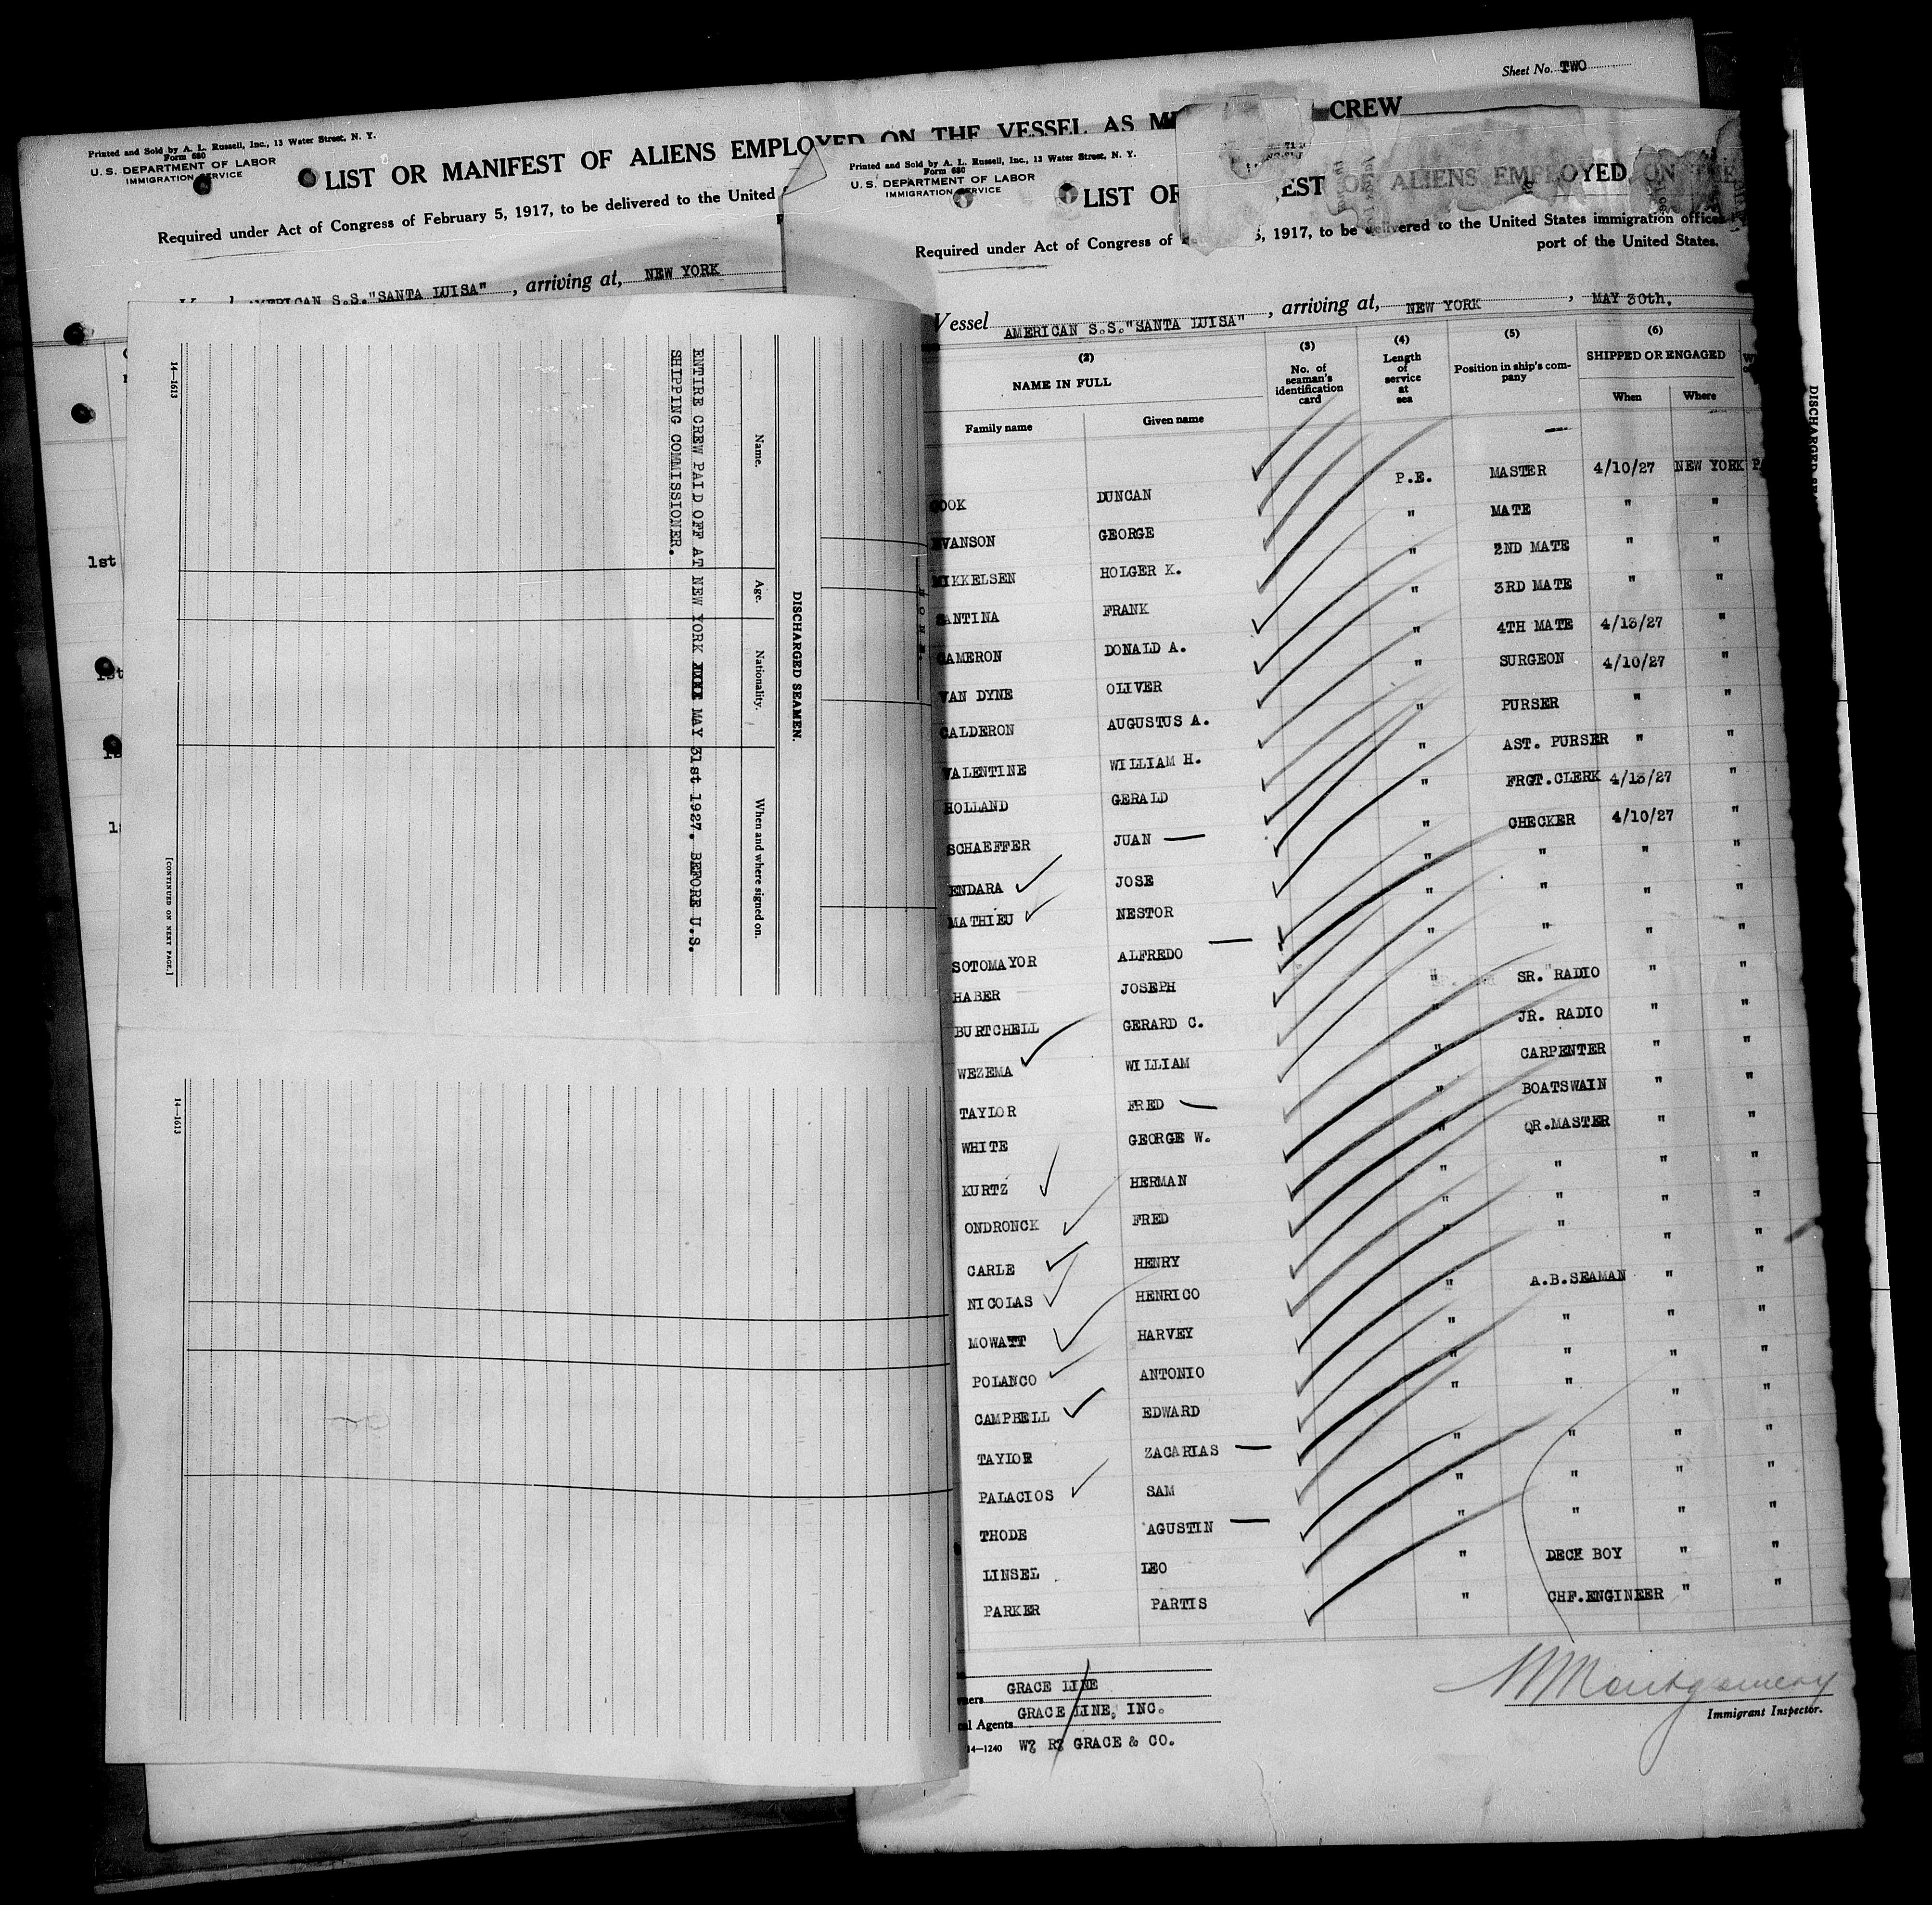 Sheet No. TWO
Printed and Sold by A. L. Russell, Inc., 13 Water Street, N. Y.
Form 680
U. S. DEPARTMENT OF LABOR
IMMIGRATION SERVICE
LIST OR MANIFEST OF ALIENS EMPLOYED ON THE VESSEL AS CREW
Required under Act of Congress of February 5, 1917, to be delivered to the United
AMERICAN S.S."SANTA LUISA", arriving at, NEW YORK
1st
1st
14—1613
[CONTINUED ON NEXT PAGE.]
DISCHARGED SEAMEN.
Name. Age. Nationality. When and where signed on.
ENTIRE CREW PAID OFF AT NEW YORK MAY 31st 1927. BEFORE U.S.
SHIPPING COMMISSIONER.
14—1613
Printed and Sold by A. L. Russell, Inc., 13 Water Street, N. Y.
Form 680
U. S. DEPARTMENT OF LABOR
IMMIGRATION SERVICE
LIST OR EST OF ALIENS EMPLOYED ON THE
Required under Act of Congress of 5, 1917, to be delivered to the United States immigration officer
port of the United States.
Vessel AMERICAN S.S."SANTA LUISA", arriving at, NEW YORK, MAY 30th,
(2) (3) (4) (5) (6)
NAME IN FULL No. of seaman's identification card Length of service at sea Position in ship's company SHIPPED OR ENGAGED
Family name Given name When Where
COOK DUNCAN P.E. MASTER 4/10/27 NEW YORK
EVANSON GEORGE " MATE " "
MIKKELSEN HOLGER K. " 2ND MATE " "
SANTINA FRANK " 3RD MATE " "
CAMERON DONALD A. " 4TH MATE 4/13/27 "
VAN DYNE OLIVER " SURGEON 4/10/27 "
CALDERON AUGUSTUS A. " PURSER " "
VALENTINE WILLIAM H. " AST. PURSER " "
HOLLAND GERALD " FRGT.CLERK 4/13/27 "
SCHAEFFER JUAN " CHECKER 4/10/27 "
ENDARA JOSE " " " "
MATHIEU NESTOR " " " "
SOTOMAYOR ALFREDO " " " "
HABER JOSEPH " SR. RADIO " "
BURTCHELL GERARD C. " JR. RADIO " "
WEZEMA WILLIAM " CARPENTER " "
TAYLOR FRED " BOATSWAIN " "
WHITE GEORGE W. " QR.MASTER " "
KURTZ HERMAN " " " "
ONDRONCK FRED " " " "
CARLE HENRY " " " "
NICOLAS HENRICO " A.B.SEAMAN " "
MOWATT HARVEY " " " "
POLANCO ANTONIO " " " "
CAMPBELL EDWARD " " " "
TAYLOR ZACARIAS " " " "
PALACIOS SAM " " " "
THODE AGUSTIN " " " "
LINSEL LEO " DECK BOY " "
PARKER PARTIS " CHF.ENGINEER " "
GRACE LINE
GRACE LINE, INC.
al Agents
14—1240 W? R? GRACE & CO.
Montgomery
Immigrant Inspector.